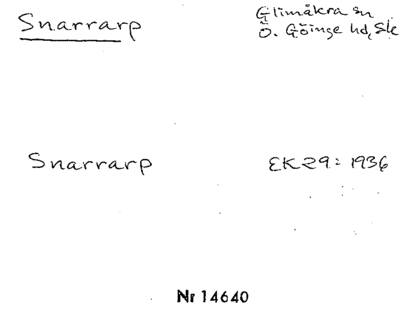 Snarrarp
Glimåkra sn
Ö. Göinge hd, Sk
Snarrarp
EK29: 1936
Nr 14640